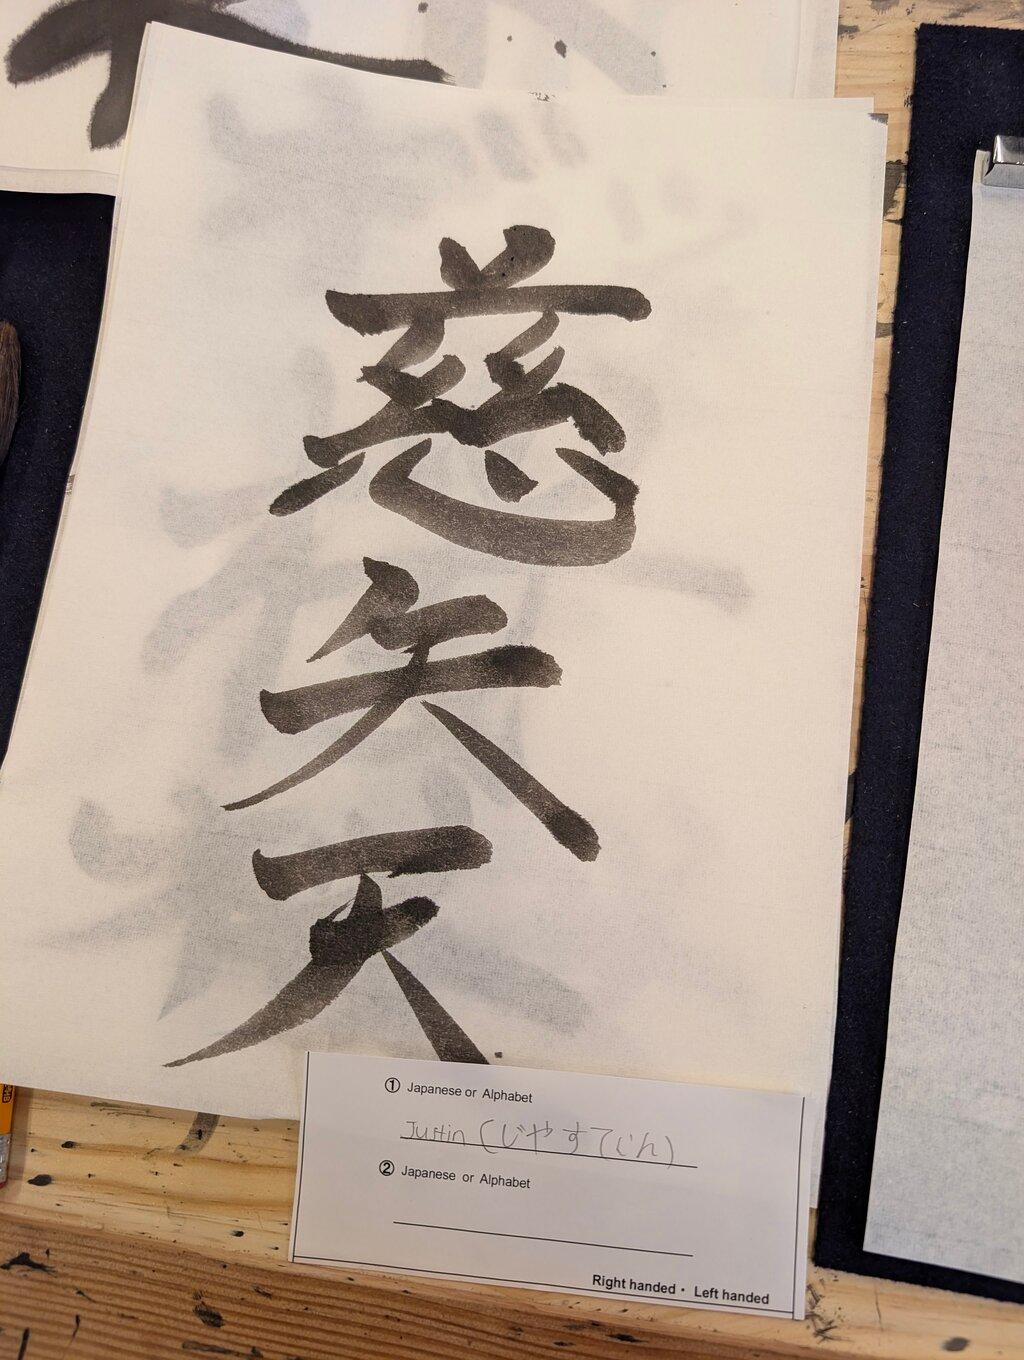 慈
矢
天
① Japanese or Alphabet
Justin (じやすてぃん)
② Japanese or Alphabet
Right handed・ Left handed